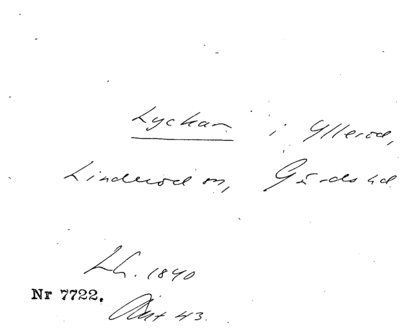 Lyckan i Yllerod,
Linderöd sn, Gärds hd
LG. 1840
Nr 7722.
Akt 43.